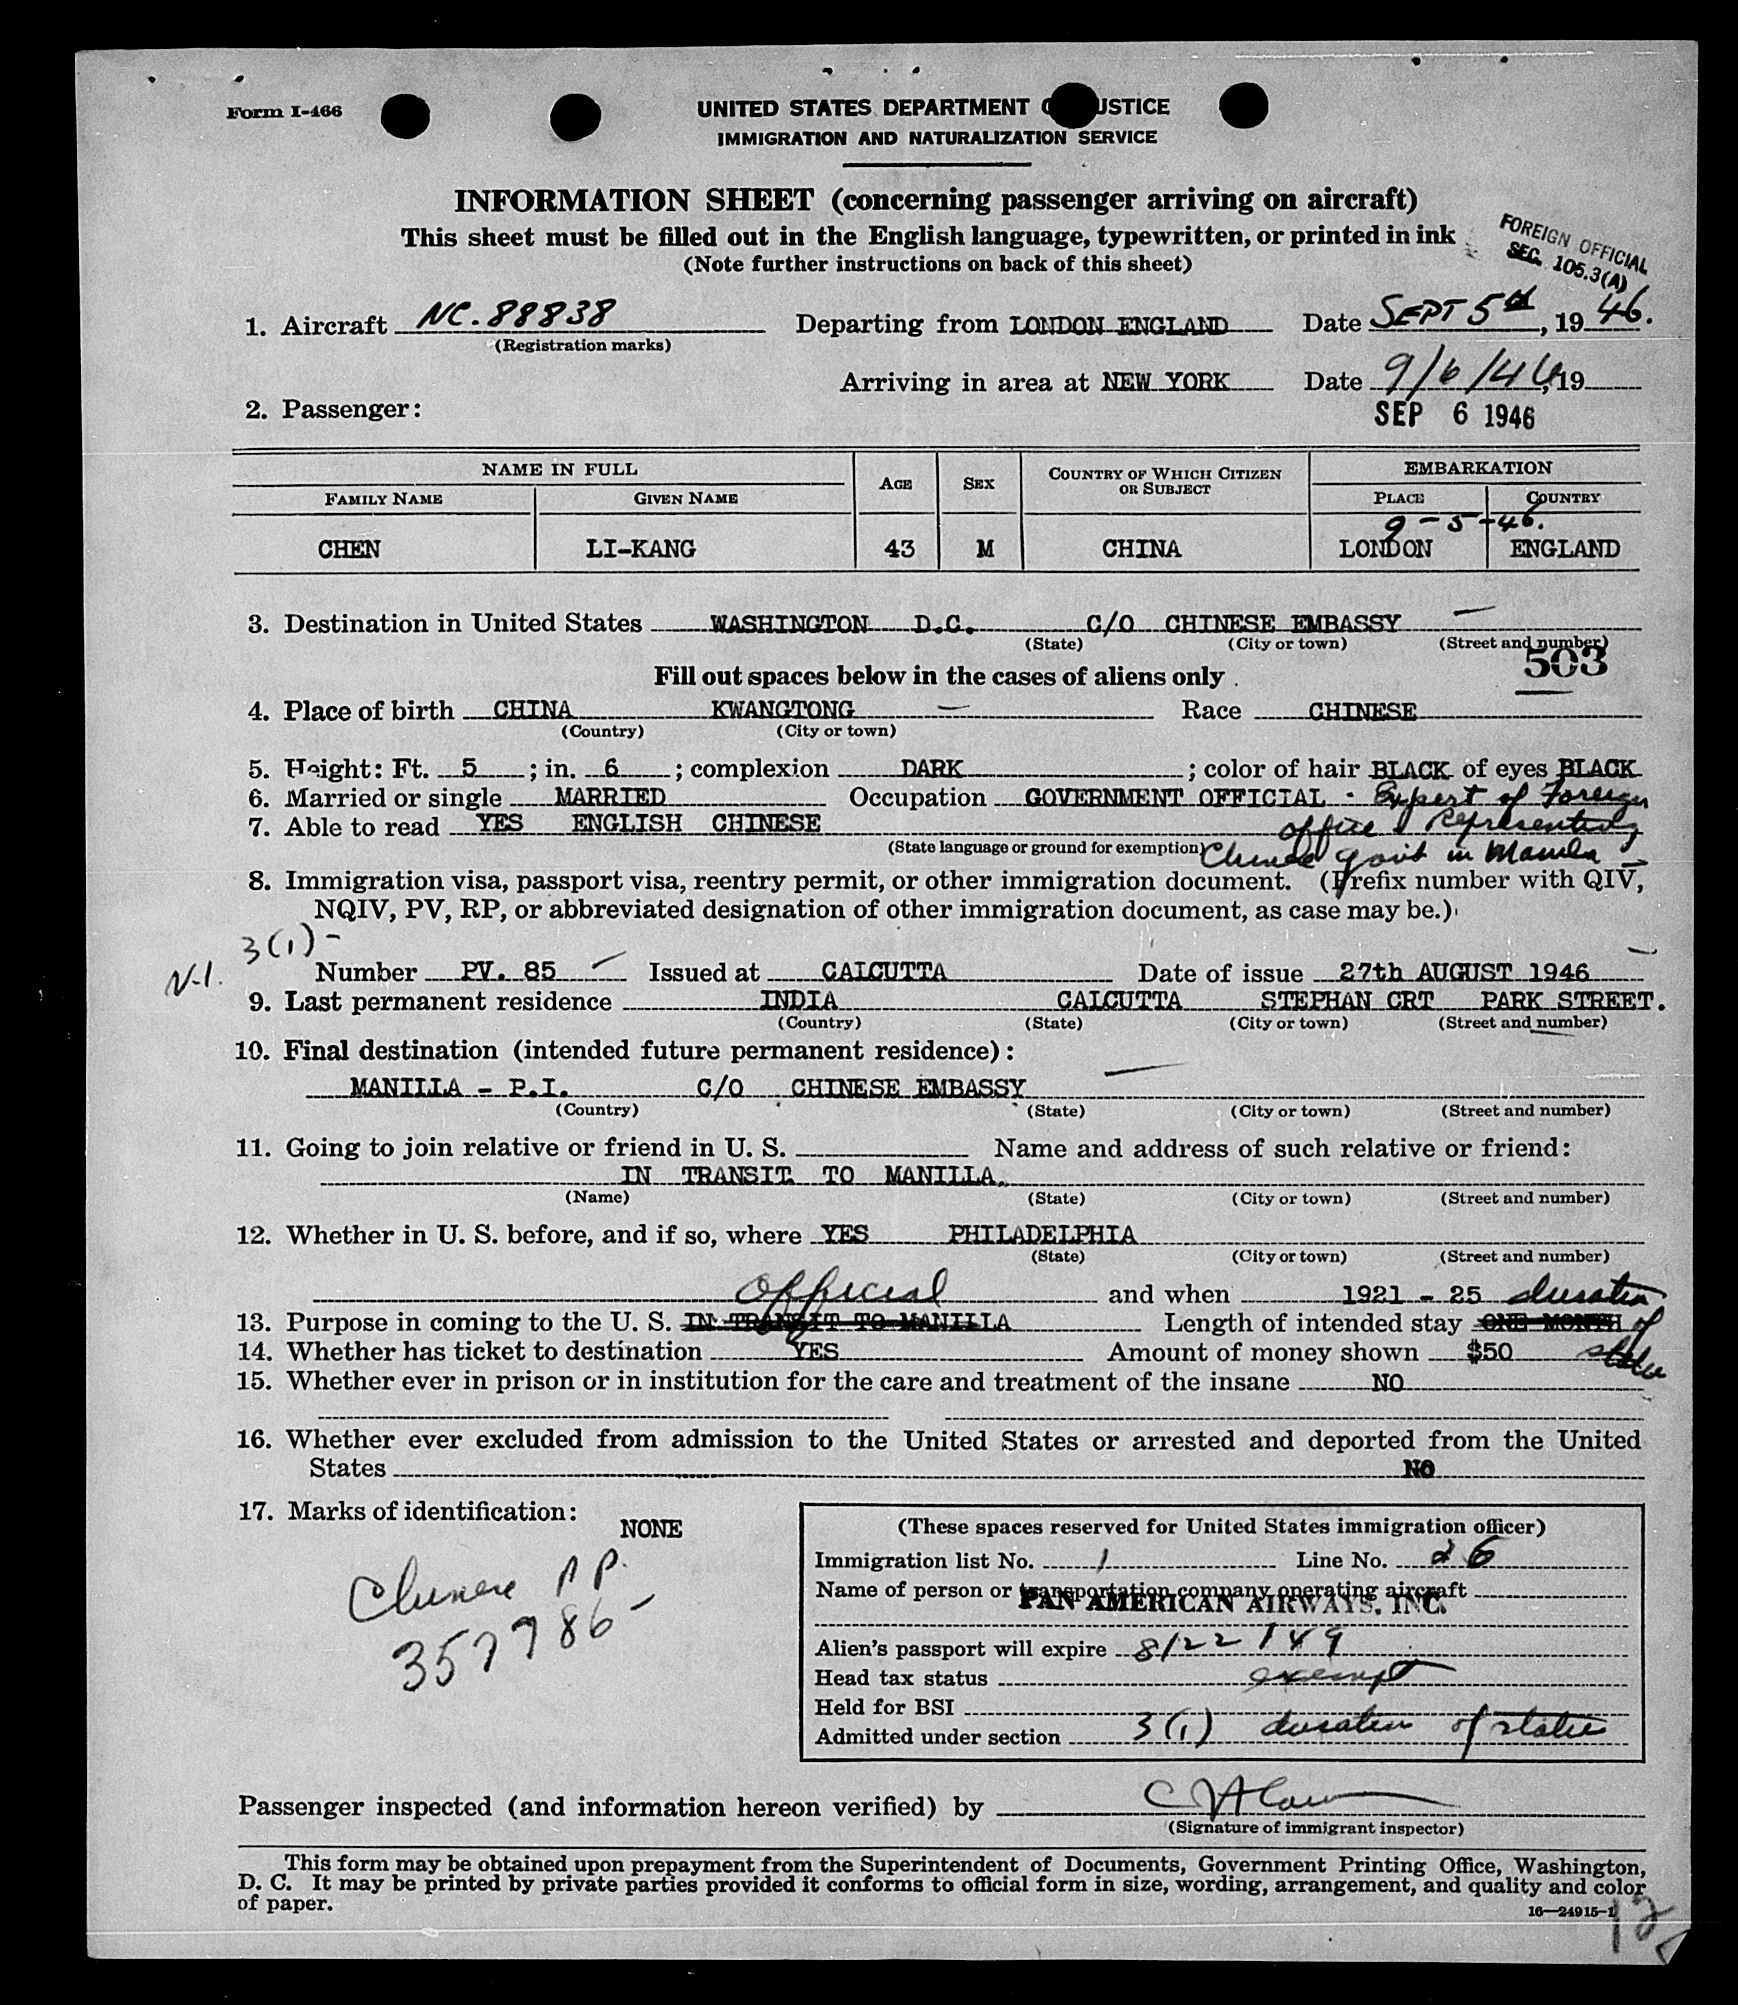 Form I-466
UNITED STATES DEPARTMENT O JUSTICE
IMMIGRATION AND NATURALIZATION SERVICE
INFORMATION SHEET (concerning passenger arriving on aircraft)
This sheet must be filled out in the English language, typewritten, or printed in ink
(Note further instructions on back of this sheet)
FOREIGN OFFICIAL
SEC. 105.3(A)
1. Aircraft NC. 88838 Departing from LONDON ENGLAND Date SEPT 5th, 1946.
(Registration marks)
Arriving in area at NEW YORK Date 9/6/46, 19
2. Passenger:
SEP 6 1946
NAME IN FULL AGE SEX COUNTRY OF WHICH CITIZEN OR SUBJECT EMBARKATION
FAMILY NAME GIVEN NAME PLACE COUNTRY
9-5-46.
CHEN LI-KANG 43 M CHINA LONDON ENGLAND
3. Destination in United States WASHINGTON D.C. C/O CHINESE EMBASSY
(State) (City or town) (Street and number)
503
Fill out spaces below in the cases of aliens only
4. Place of birth CHINA KWANGTONG — Race CHINESE
(Country) (City or town)
5. Height: Ft. 5; in. 6; complexion DARK; color of hair BLACK of eyes BLACK
6. Married or single MARRIED Occupation GOVERNMENT OFFICIAL - Expert of Foreign
7. Able to read YES ENGLISH CHINESE office Representing
(State language or ground for exemption) Chinese Gov't in Manila
8. Immigration visa, passport visa, reentry permit, or other immigration document. (Prefix number with QIV,
NQIV, PV, RP, or abbreviated designation of other immigration document, as case may be.)
3(1)-
N-I. Number PV. 85 Issued at CALCUTTA Date of issue 27th AUGUST 1946
9. Last permanent residence INDIA CALCUTTA STEPHAN CRT PARK STREET.
(Country) (State) (City or town) (Street and number)
10. Final destination (intended future permanent residence):
MANILLA - P.I. C/O CHINESE EMBASSY
(Country) (State) (City or town) (Street and number)
11. Going to join relative or friend in U. S. Name and address of such relative or friend:
IN TRANSIT TO MANILLA.
(Name) (State) (City or town) (Street and number)
12. Whether in U. S. before, and if so, where YES PHILADELPHIA
(State) (City or town) (Street and number)
Official and when 1921 - 25 duration
13. Purpose in coming to the U. S. IN TRANSIT TO MANILLA Length of intended stay ONE MONTH of
14. Whether has ticket to destination YES Amount of money shown $50 status
15. Whether ever in prison or in institution for the care and treatment of the insane NO
16. Whether ever excluded from admission to the United States or arrested and deported from the United
States NO
17. Marks of identification:
NONE
Chinese P.P.
357786-
(These spaces reserved for United States immigration officer)
Immigration list No. 1 Line No. 26
Name of person or transportation company operating aircraft
PAN AMERICAN AIRWAYS, INC.
Alien's passport will expire 8/22/49
Head tax status exempt
Held for BSI
Admitted under section 3(1) duration of status
Passenger inspected (and information hereon verified) by
(Signature of immigrant inspector)
This form may be obtained upon prepayment from the Superintendent of Documents, Government Printing Office, Washington,
D. C. It may be printed by private parties provided it conforms to official form in size, wording, arrangement, and quality and color
of paper.
16—24915-1